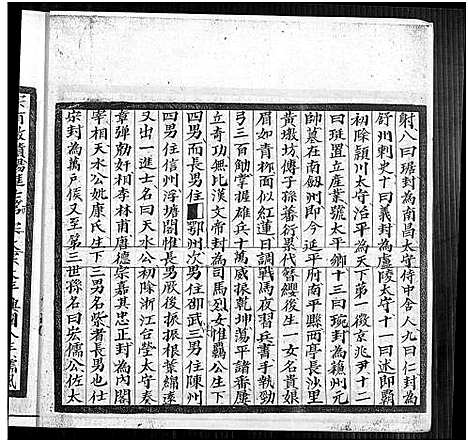 射八曰琚封為南昌太守侍中舍人九曰仁封為
舒州刺史十曰義封為虔陵太守十一曰述即霸
初除潁川太守治平為天下第一徵京兆尹十二
曰珽置立產業號太平鄉十三曰琬封為贛州元
帥墓在南劔州即今延平府南平縣西亭長沙里
黃墩坊傳子孫蕃衍累代簪纓後生一女名貴娘
眉如青柳面似紅蓮日調戰馬夜習兵書手執勁
弓三百觔掌握雄兵十萬威振乾坤蕩平諸番屢
立奇功無比漢文帝封為司馬烈女惟霸公生下
四男而長男住鄂州次男住邵武三男住陳州
四男住信州浮塘閣惟長男厥後振振根葉綿遠
又出一進士名曰天水公初除浙江台塋太守奏
章彈劾奸相李林甫唐德宗嘉其忠正封為內閣
宰相天水公娰康氏生下三男名柴者長男也徙
宗封為萬戶侯又至第三世孫名曰宏儒公佐太